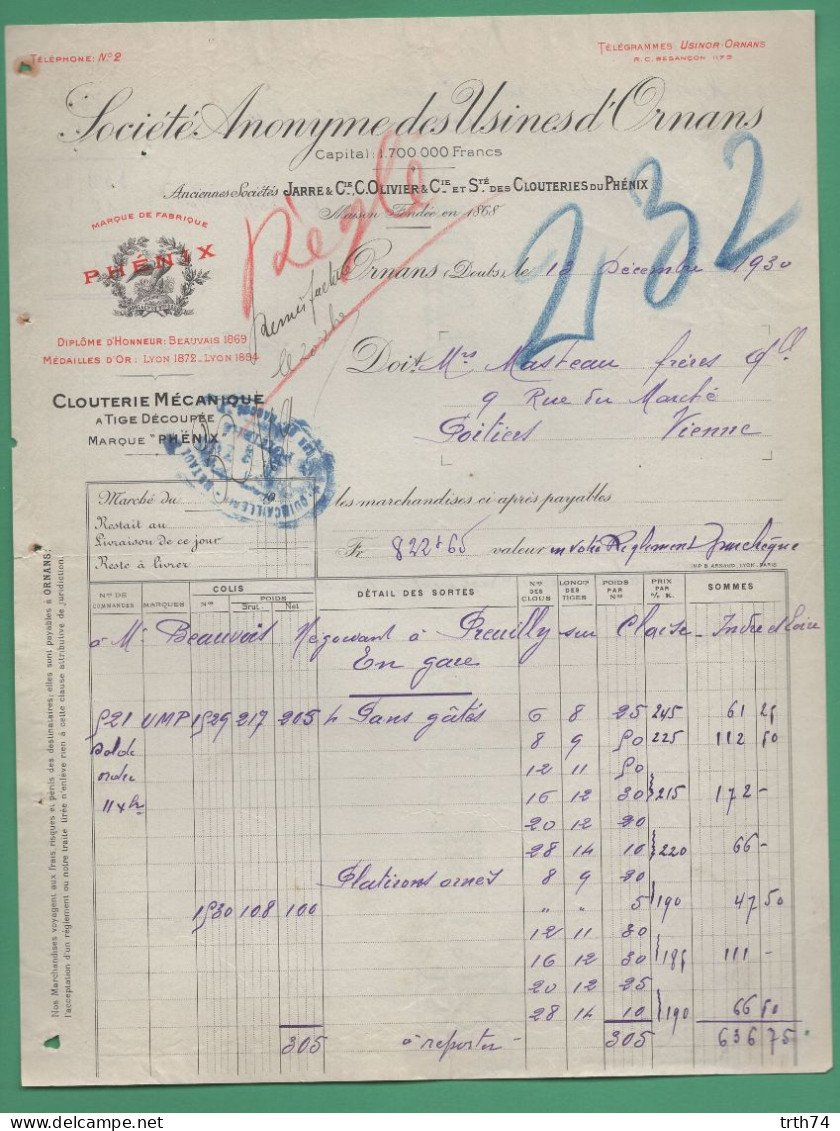 TÉLÉPHONE: Nº 2
TÉLÉGRAMMES: USINOR-ORNANS
R. C. BESANÇON 1179
Société Anonyme des Usines d'Ornans
Capital: 1.700.000 Francs
Anciennes Sociétés JARRE & CIE, C. OLIVIER & CIE ET STÉ DES CLOUTERIES DU PHÉNIX
Maison Fondée en 1868
Réglé
232
MARQUE DE FABRIQUE
PHÉNIX
DIPLÔME D'HONNEUR: BEAUVAIS 1869
MÉDAILLES D'OR: LYON 1872_LYON 1894
CLOUTERIE MÉCANIQUE
A TIGE DÉCOUPÉE
MARQUE "PHÉNIX"
Ornans (Doubs) le 13 Décembre 1930
Doit Mrs Masteau frères
9 Rue du Marché
Poitiers Vienne
Marché du 19
Restait au
Livraison de ce jour
Reste à livrer
les marchandises ci après payables
Fr 822f65 valeur en votre Règlement
IMP. B. ARNAUD, LYON-PARIS
Nos DE COMMANDES MARQUES COLIS Nos POIDS Brut Net DÉTAIL DES SORTES Nos DES CLOUS LONGrs DES TIGES POIDS PAR No PRIX PAR % K. SOMMES
à Mr Beauvois Négociant à Preuilly sur Claise - Indre et Loire
En gare
521 UMP 1529 217 205 k Pans gâtés 6 8 25 245 61 25
solde 8 9 50 225 112 50
ordre 12 11 50
16 12 30 215 172 -
20 12 20
28 14 10 220 66 -
Platirons ornés 8 9 20
1530 108 100 " " 5 190 47 50
12 11 30
16 12 30 185 111 -
20 12 25
28 14 10 190 66 50
305 à reporter - 305 636 75
Nos Marchandises voyagent aux frais, risques et périls des destinataires; elles sont payables à ORNANS;
l'acceptation d'un règlement ou notre traite tirée n'enlève rien à cette clause attributive de juridiction.
trth74